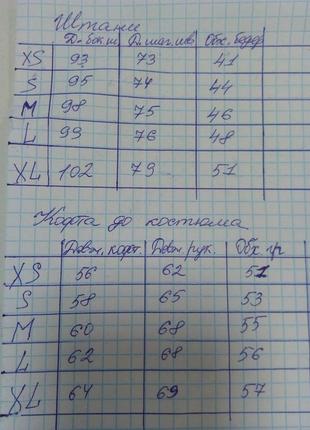 Штани
Дл. бок. ш. Дл. шаг. шва Обх. бедер
XS 93 73 41
S 95 74 44
M 98 75 46
L 99 76 48
XL 102 79 51
Кофта до костюма
Довж. кофт. Довж. рук. Обх. гр
XS 56 62 51
S 58 65 53
M 60 68 55
L 62 68 56
XL 64 69 57